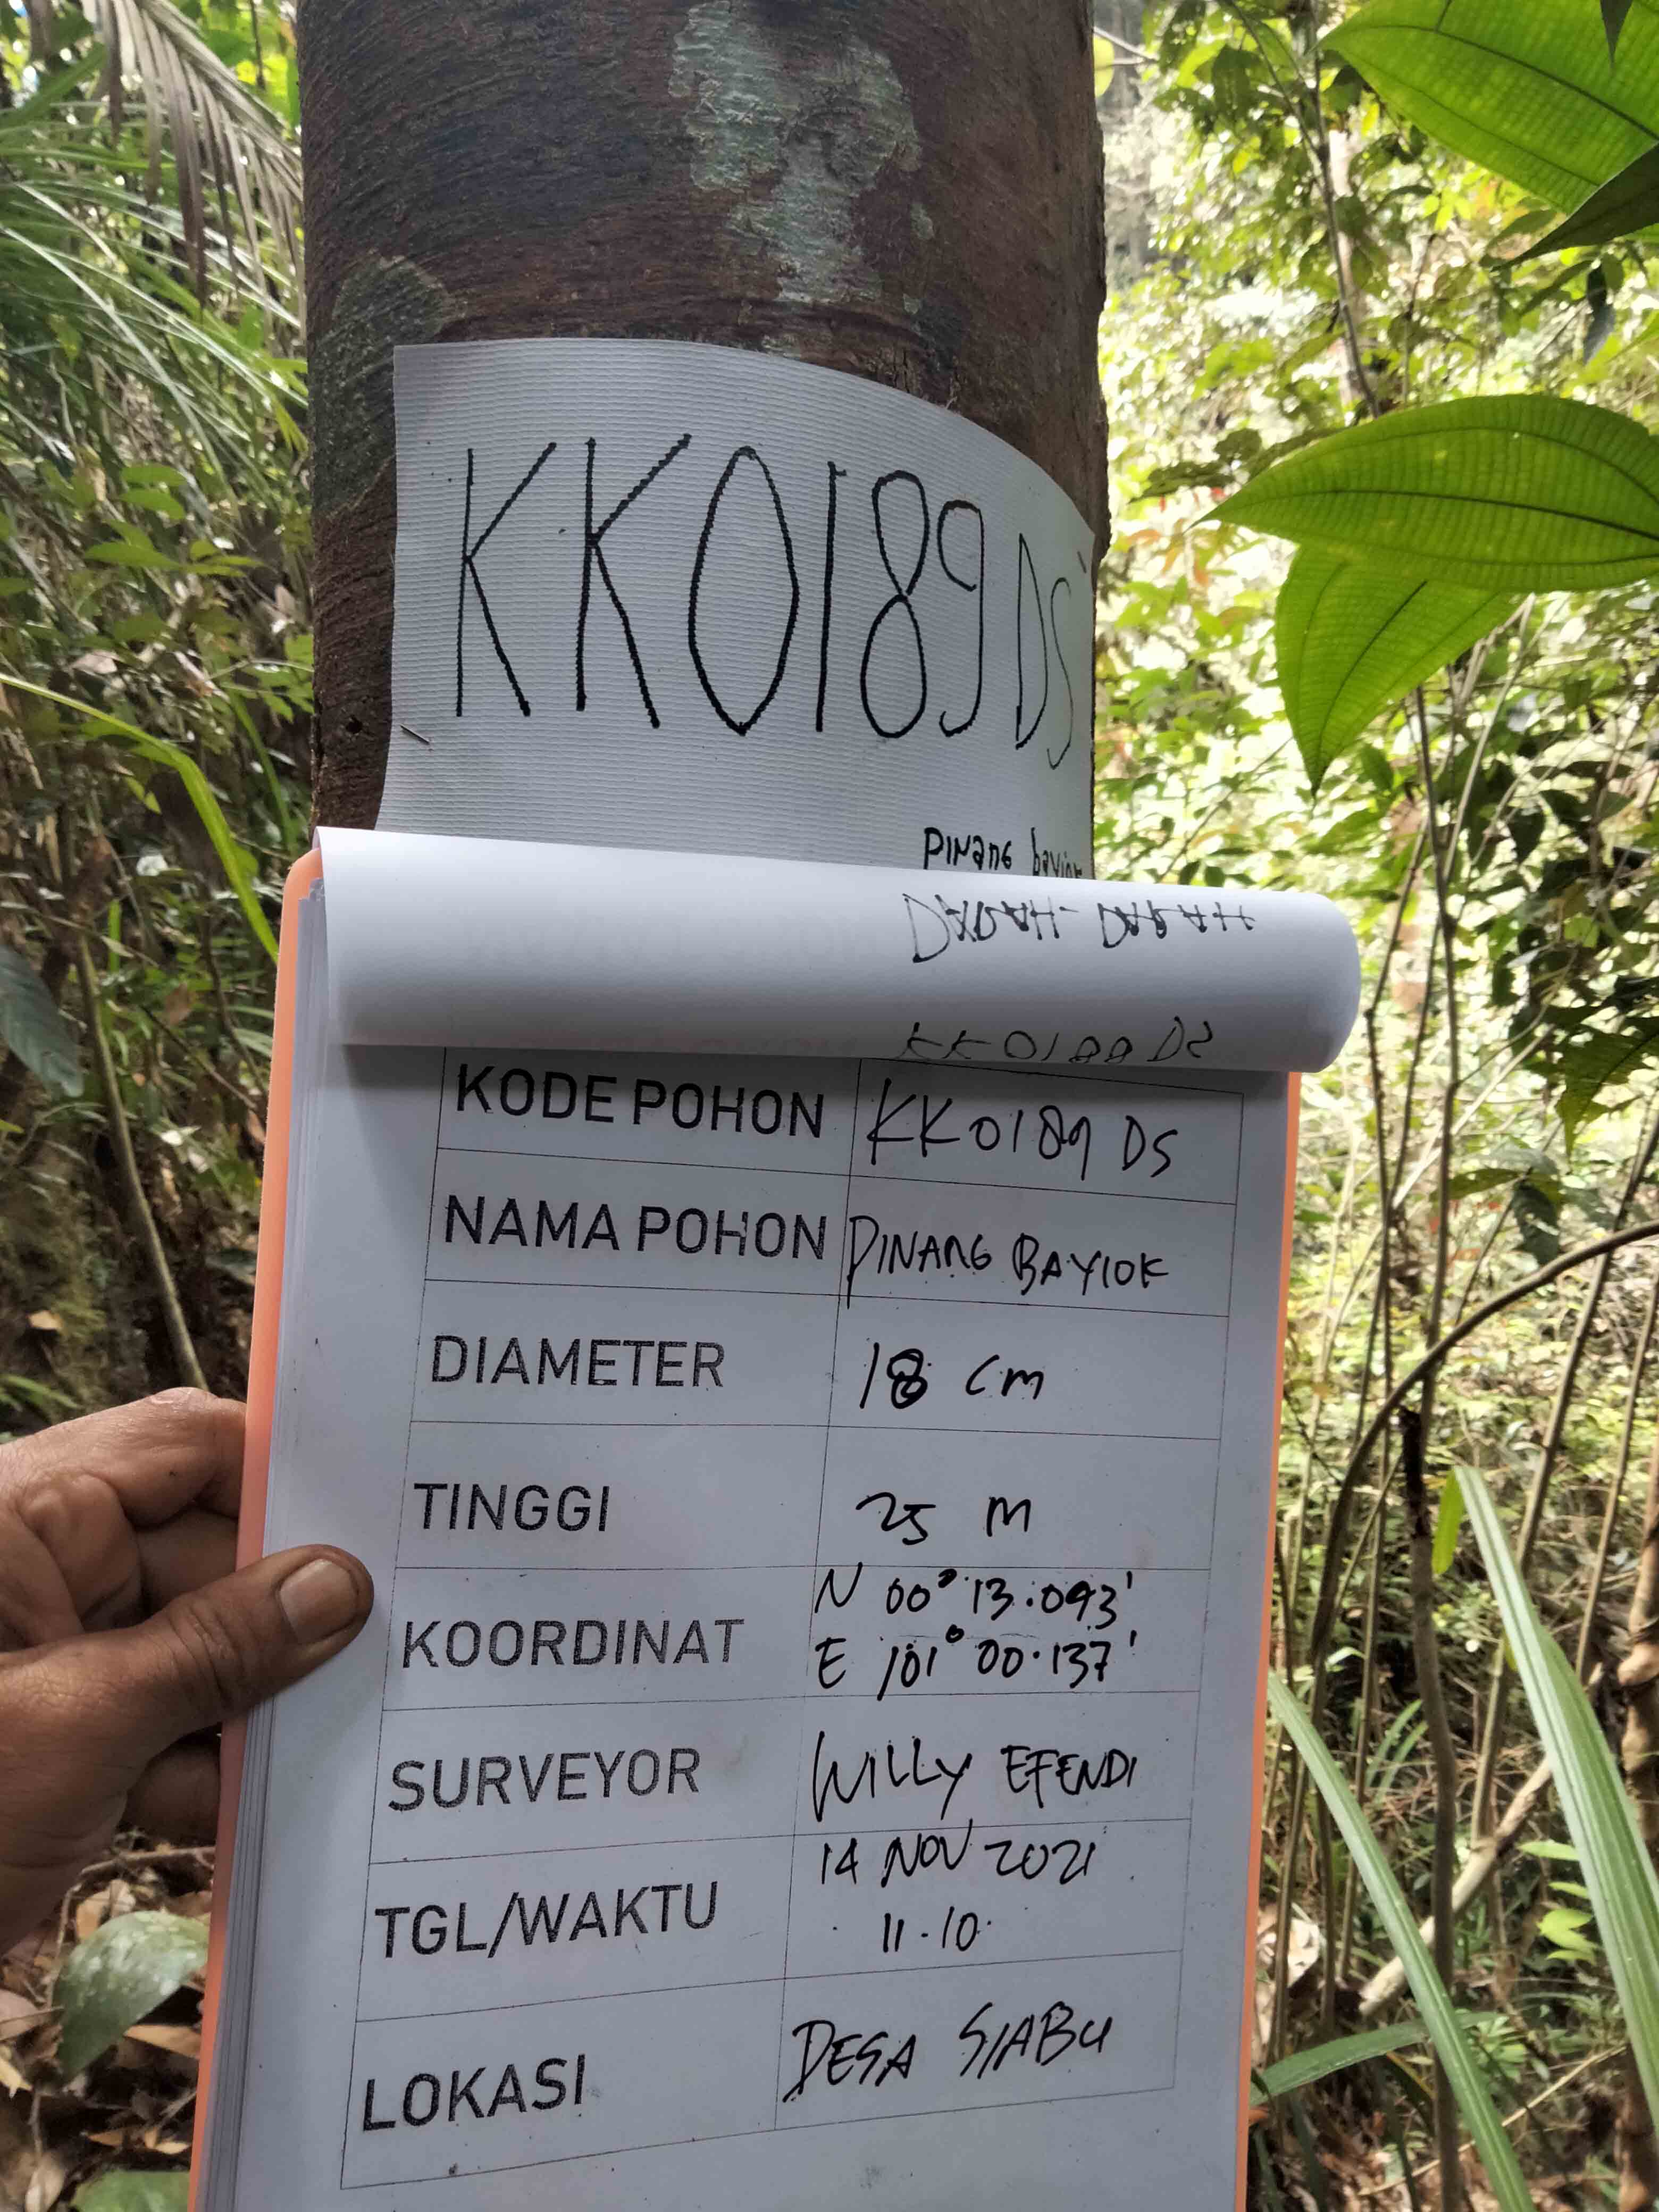 KK0189 DS
PINANG bayiok
DARAH-DARAH
KK0188 DS
KODE POHON KK0189 DS
NAMA POHON PINANG BAYIOK
DIAMETER 18 cm
TINGGI 25 M
KOORDINAT N 00° 13.093'
E 101° 00.137'
SURVEYOR WILLY EFENDI
TGL/WAKTU 14 NOV 2021
11.10
LOKASI DESA SIABU